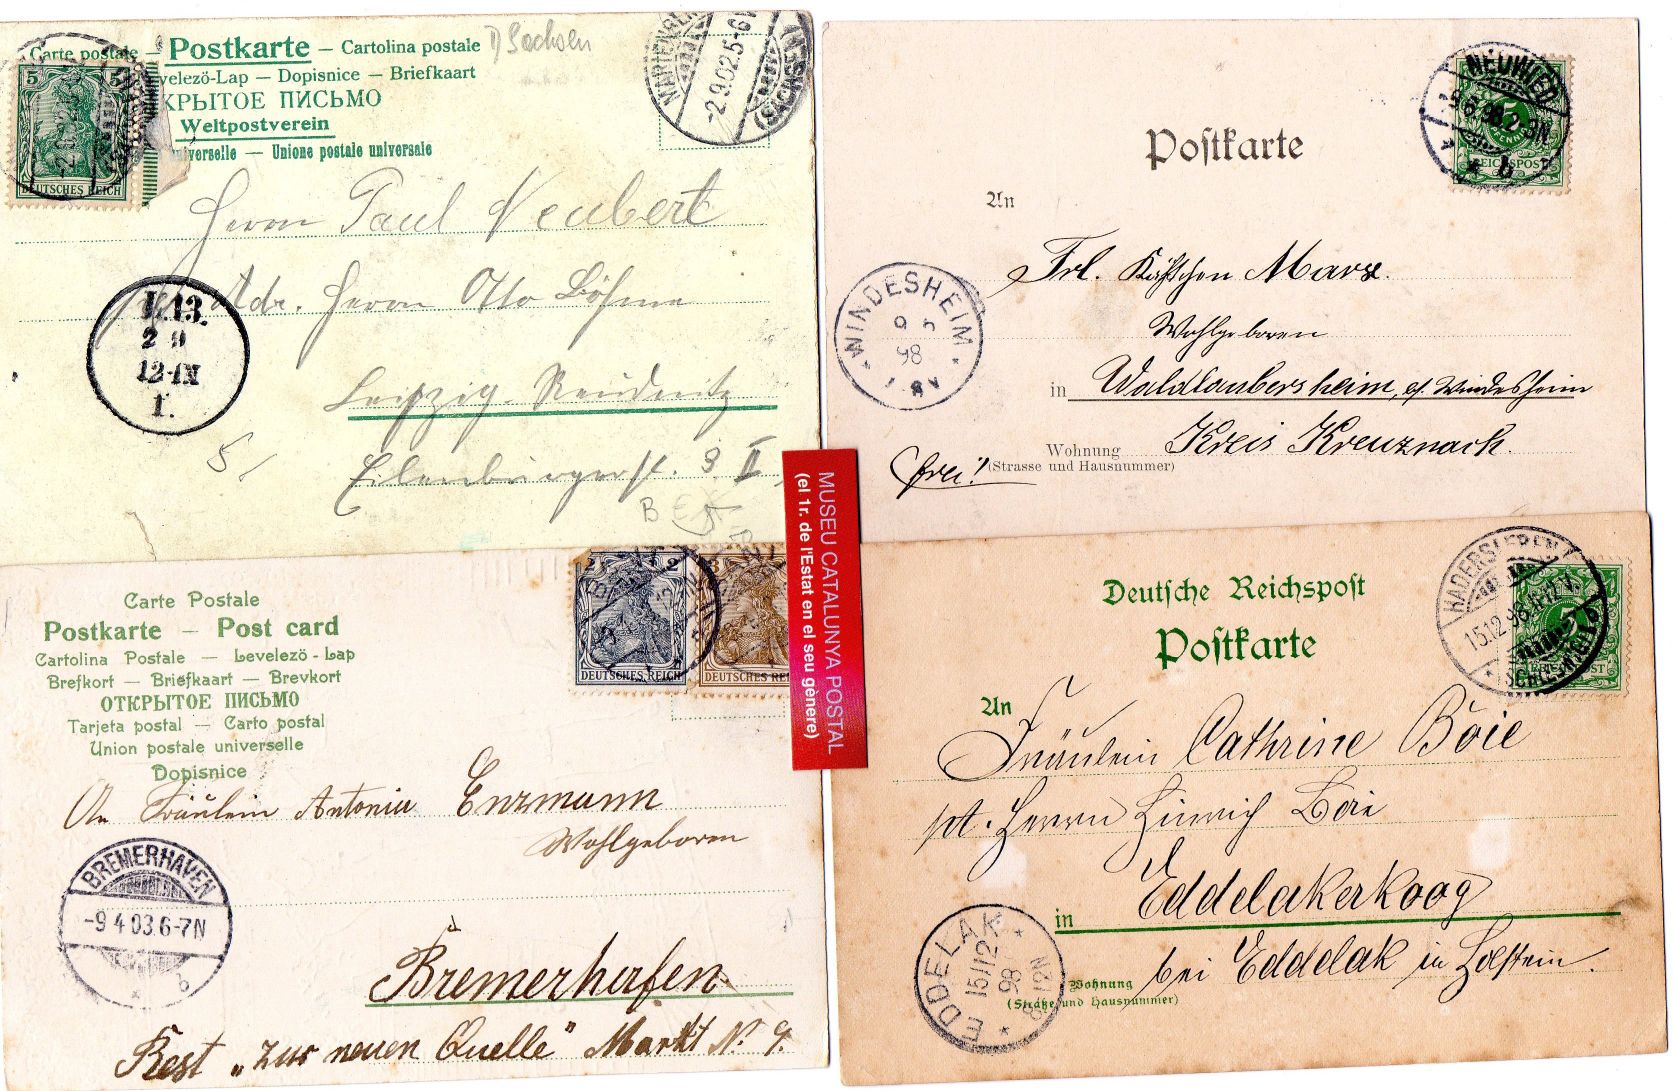 Carte postale — Postkarte — Cartolina postale
Sachsen
velezö-Lap — Dopisnice — Briefkaart
КРЫТОЕ ПИСЬМО
Weltpostverein
universelle — Unione postale universale
5 5
DEUTSCHES REICH
-2.9.02.5-6V
Herrn Paul Neubert
Adr. Herrn Otto Böhme
Leipzig-Reudnitz
Eilenburgerst. 3 II
2 9
12-1N
1.
Postkarte
An
NEUWIED
b
5
PFENNIG
REICHSPOST
Frl. Käthchen Marx.
Wohlgeboren
in Waldlaubersheim, p/. Windesheim
Wohnung Kreis Kreuznach.
(Strasse und Hausnummer)
frei!
WINDESHEIM
98
MUSEU CATALUNYA POSTAL
(el 1r. de l'Estat en el seu gènere)
Carte Postale
Postkarte — Post card
Cartolina Postale — Levelezö-Lap
Brefkort — Briefkaart — Brevkort
ОТКРЫТОЕ ПИСЬМО
Tarjeta postal — Carto postal
Union postale universelle
Dopisnice
2 2
DEUTSCHES REICH
3
DEUTSCHES REI
An Fräulein Antonia Enzmann
Wohlgeboren
BREMERHAVEN
-9 4 03.6-7N
* b
Bremerhafen.
Rest „zur neuen Quelle" Markt No. 9.
Deutsche Reichspost
Postkarte
An
HADERSLEBEN
15.12.98.11-12V.
(SCHLESWIG)
Fräulein Cathrine Böie
pt. Herrn Hinrich Böie
in Eddelakerkoog
bei Eddelak in Holstein.
Wohnung
(Straße und Hausnummer)
EDDELAK
15/12
98
8-12N